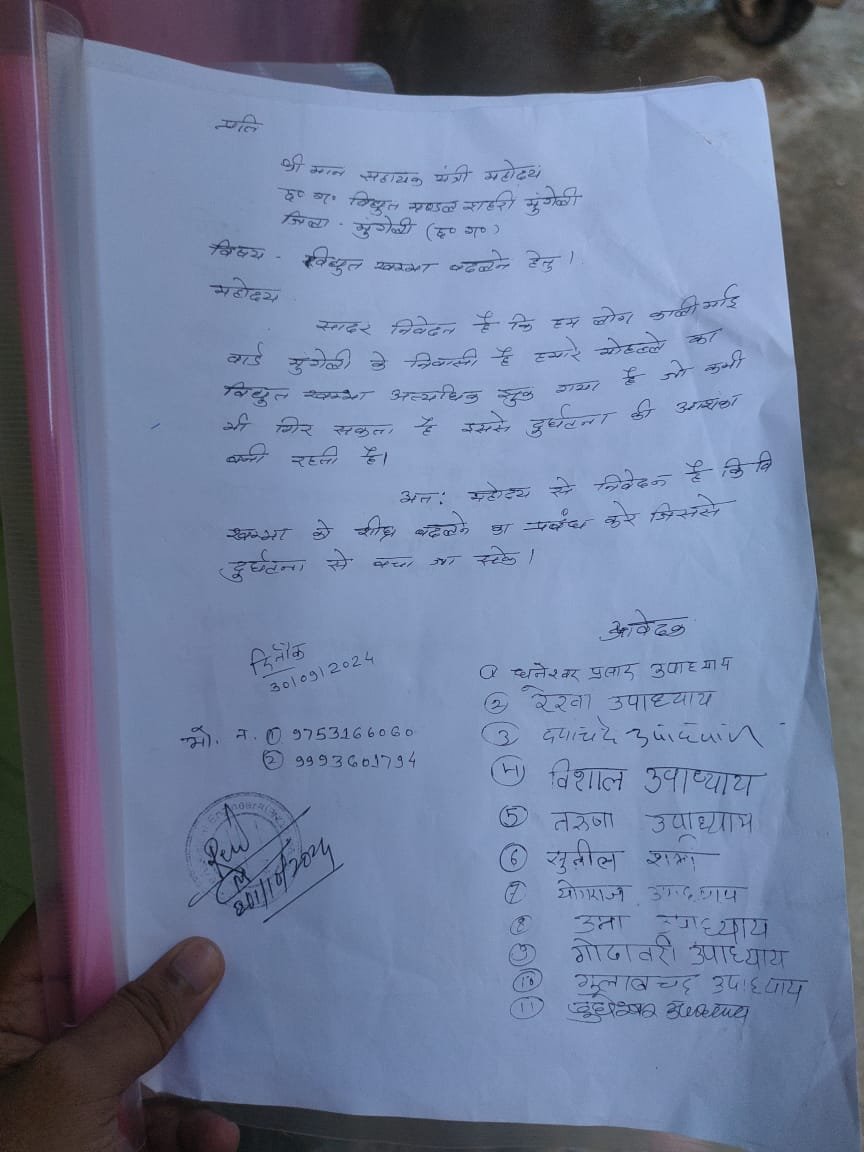 प्रति
श्री मान सहायक यंत्री महोदय
छ० ग० विद्युत मण्डल शहरी मुंगेली
जिला - मुंगेली (छ० ग०)
विषय - विद्युत खम्भा बदलने हेतु।
महोदय
सादर निवेदन है कि हम लोग काली माई
वार्ड मुंगेली के निवासी है हमारे मोहल्ले का
विद्युत खम्भा अत्यधिक झुक गया है जो कभी
भी गिर सकता है इससे दुर्घटना की आशंका
बनी रहती है।
अतः महोदय से निवेदन है कि वि
खम्भा को शीघ्र बदलने का प्रबंध करे जिससे
दुर्घटना से बचा जा सके।
आवेदक
दिनाँक
30/09/2024
मो. न. ① 9753166060
② 9993601794
① धनेश्वर प्रसाद उपाध्याय
② रेखा उपाध्याय
③ उपाध्याय
④ विशाल उपाध्याय
⑤ तरुणा उपाध्याय
⑥ सुनील शर्मा
⑦ योगराज उपाध्याय
⑧ उमा उपाध्याय
⑨ गोदावरी उपाध्याय
⑩ गुलाबचंद उपाध्याय
⑪ उपाध्याय